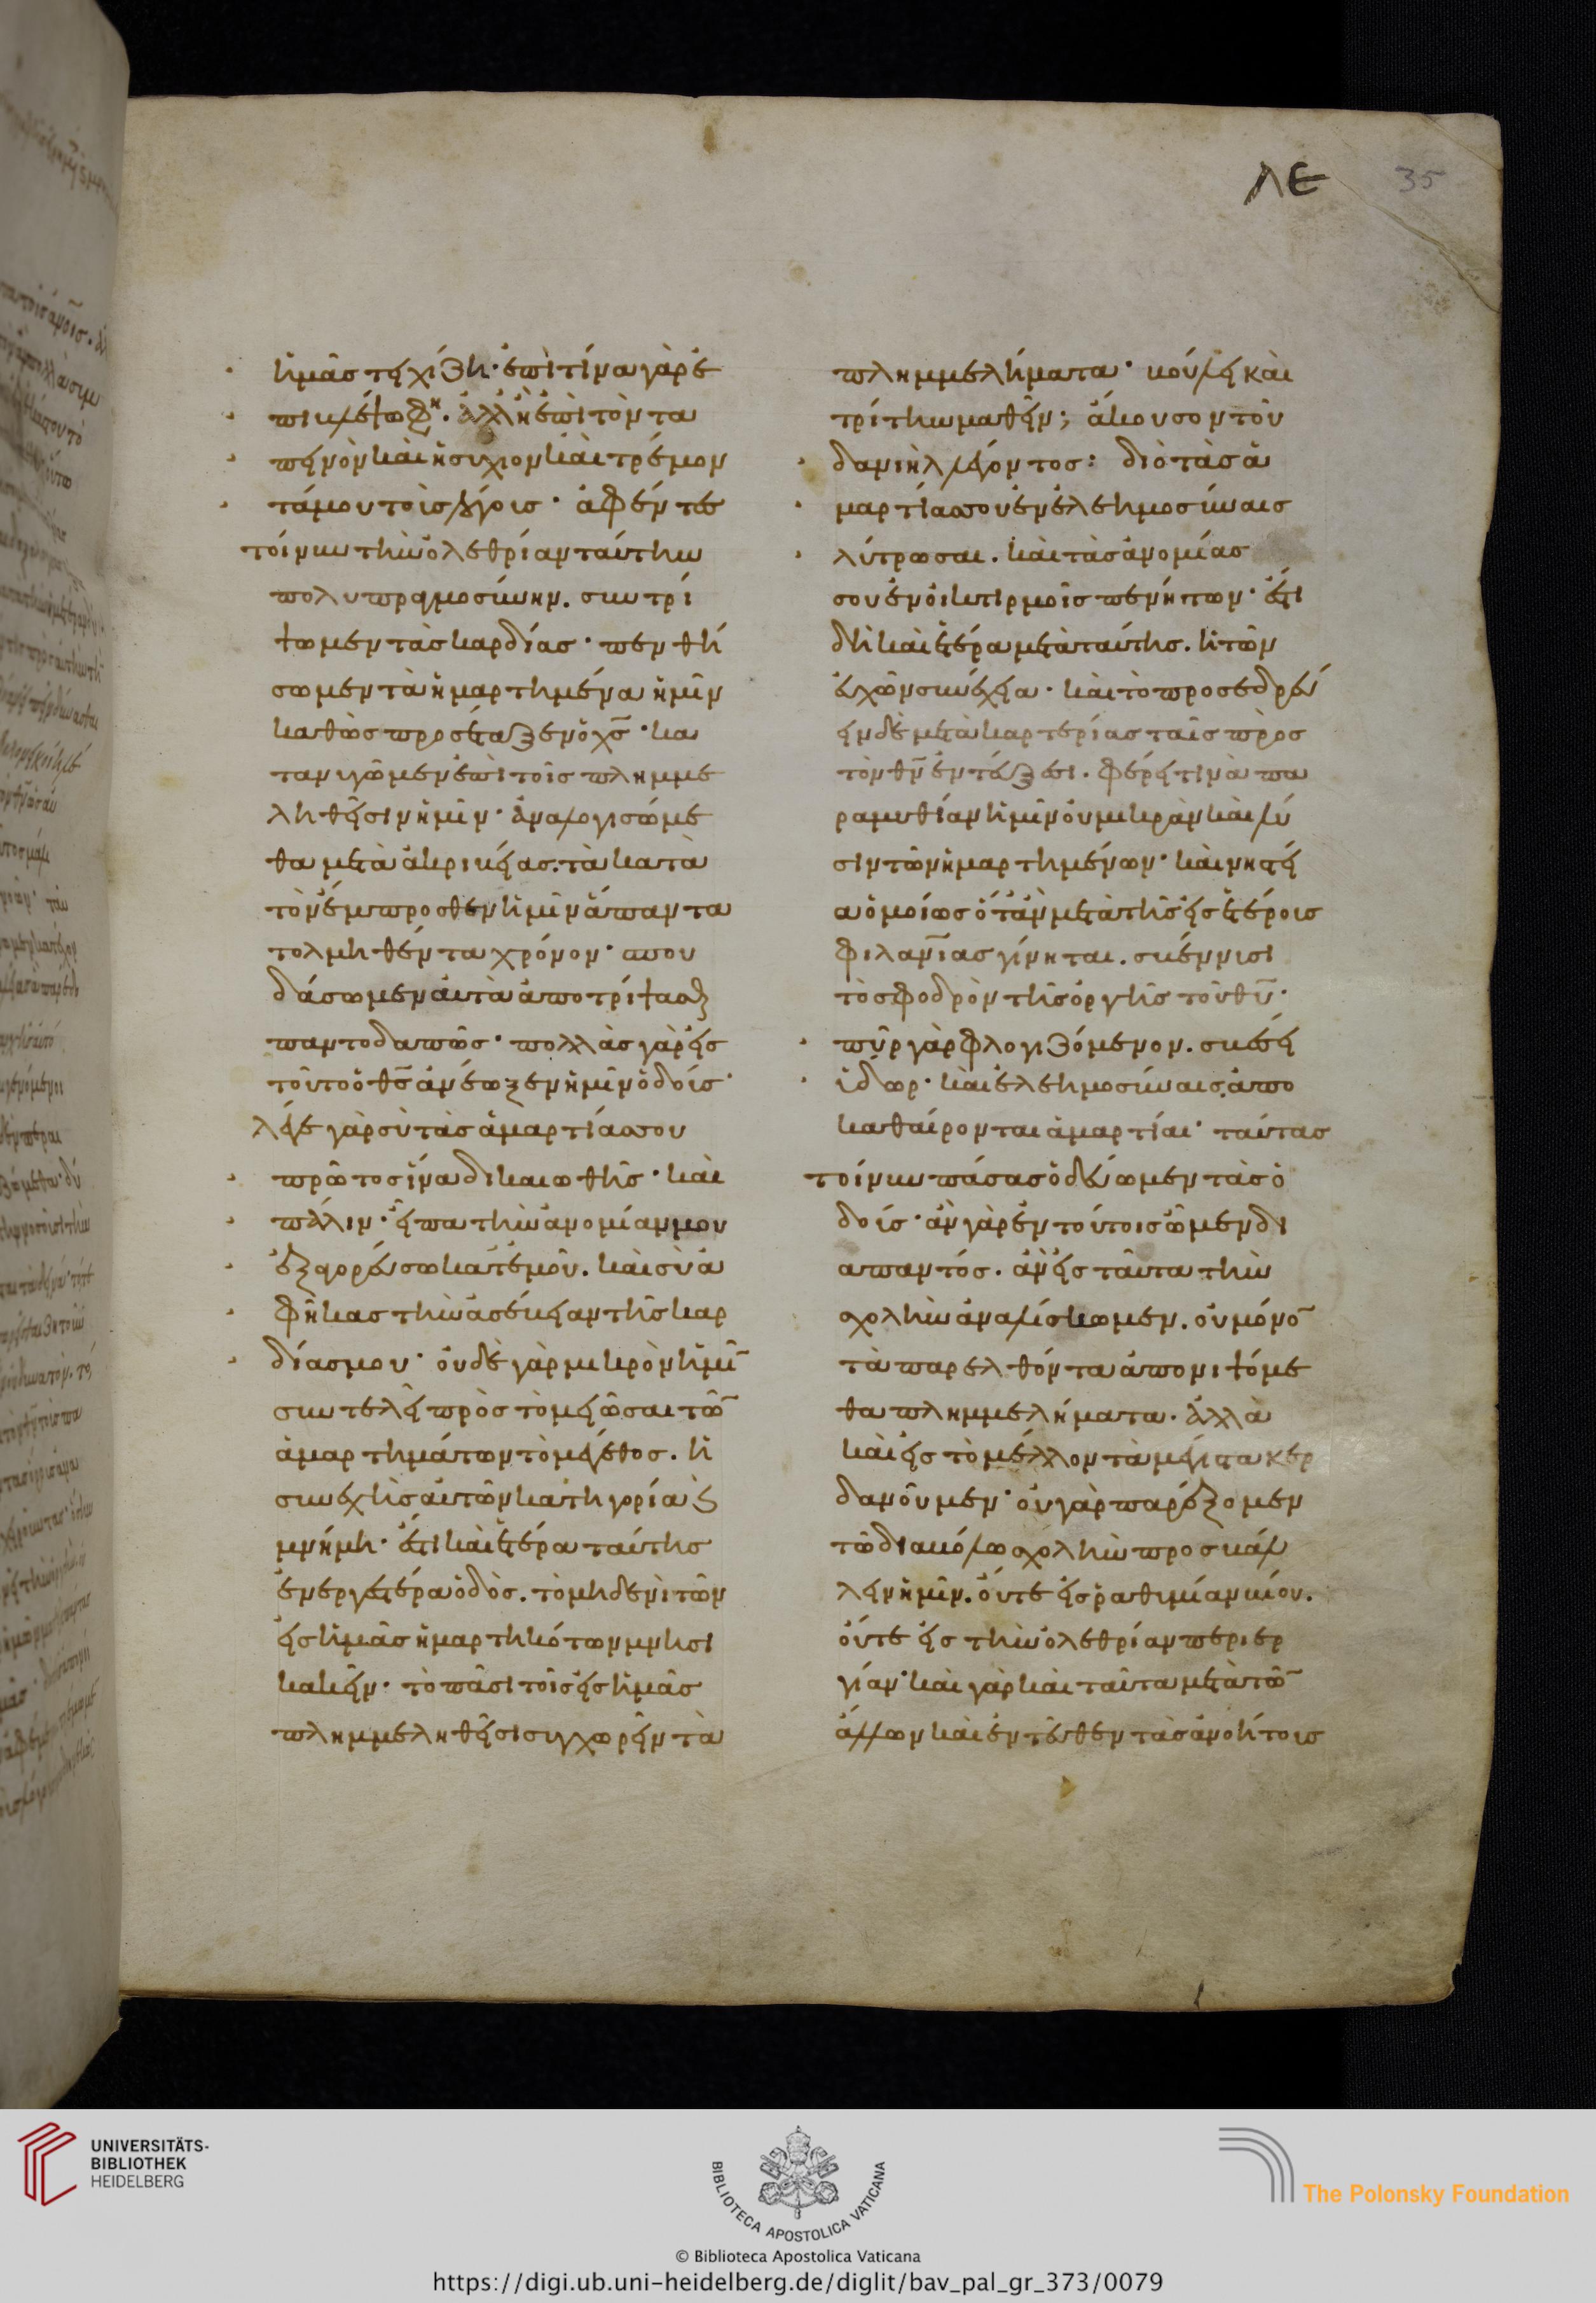 ΛΕ 35
ἡμᾶς τειχίζη· ἐπὶ τίνα γὰρ ἐ
πιβλέψω φη. ἀλλ ἢ ἐπὶ τὸν τα
πεινὸν καὶ ἡσύχιον καὶ τρέμον
τά μου τοὺς λόγους· ἀφέντες
τοίνυν τὴν ὀλεθρίαν ταύτην
πολυπραγμοσύνην. συντρί
ψωμεν τὰς καρδίας· πενθή
σωμεν τὰ ἡμαρτημένα ἡμῖν
καθὼς προσέταξεν ὁ χς· κα
τανυγῶμεν ἐπὶ τοῖς πλημμε
ληθεῖσιν ἡμῖν· ἀναλογισώμε
θα μετὰ ἀκριβείας. τὰ κατὰ
τὸν ἔμπροσθεν ἡμῖν ἅπαντα
τολμηθέντα χρόνον· σπου
δάσωμεν αὐτὰ ἀποτρίψασθαι
παντοδαπῶς· πολλὰς γὰρ εἰς
τοῦτο ὁ θς ἀνέωξεν ἡμῖν ὁδούς·
λέγε γὰρ σὺ τὰς ἁμαρτίας σου
πρῶτος ἵνα δικαιωθῆς· καὶ
πάλιν· εἶπα τὴν ἀνομίαν μου
ἐξαγορεύσω κατ ἐμοῦ. καὶ σὺ ἀ
φῆκας τὴν ἀσέβειαν τῆς καρ
δίας μου· οὐδὲ γὰρ μικρὸν ἡμῖ
συντελεῖ πρὸς τὸ μειῶσαι τῶ
ἁμαρτημάτων τὸ μέγεθος. ἡ
συνεχὴς αὐτῶν κατηγορία καὶ
μνήμη· ἔτι καὶ ἑτέρα ταύτης
ἐνεργετέρα ὁδὸς. τὸ μηδενὶ τῶν
εἰς ἡμᾶς ἡμαρτηκότων μνησι
κακεῖν· τὸ πᾶσι τοῖς εἰς ἡμᾶς
πλημμεληθεῖσι συγχωρεῖν τὰ
πλημμελήματα· βούλει καὶ
τρίτην μαθεῖν; ἄκουσον τοῦ
δανιὴλ λέγοντος: διὸ τὰς ἁ
μαρτίας σου ἐν ἐλεημοσύναις
λύτρωσαι. καὶ τὰς ἀνομίας
σου ἐν οἰκτιρμοῖς πενήτων· ἔτι
δὴ καὶ ἑτέρα μετὰ ταύτης. ἡ τῶν
εὐχῶν συνέχεια· καὶ τὸ προσεδρεύ
ειν δὲ μετὰ καρτερίας ταῖς πρὸς
τὸν θν ἐντεύξεσι. φέρει τινὰ πα
ραμυθίαν ἡμῖν οὐ μικρὰν καὶ λύ
σιν τῶν ἡμαρτημένων· καὶ νηστεί
α ὁμοίως ὅταν μετὰ τῆς εἰς ἑτέρους
φιλανίας γίνηται. σβέννυσι
τὸ σφοδρὸν τῆς ὀργῆς τοῦ θυ·
πῦρ γὰρ φλογιζόμενον. σβέσει
ὕδωρ· καὶ ἐλεημοσύναις ἀπο
καθαίρονται ἁμαρτίαι· ταύτας
τοίνυν πάσας ὁδεύωμεν τὰς ὁ
δούς· ἂν γὰρ ἐν τούτοις ὦμεν δι
απαντός. ἂν εἰς ταῦτα τὴν
σχολὴν ἀναλίσκωμεν. οὐ μόνο
τὰ παρελθόντα ἀπονιψόμε
θα πλημμελήματα. ἀλλὰ
καὶ εἰς τὸ μέλλον τὰ μέγιστα κερ
δανοῦμεν· οὐ γὰρ παρέξομεν
τῶ διαβόλω σχολὴν προσβάλ
λειν ἡμῖν. οὔτε εἰς ῥαθυμίαν βίου.
οὔτε εἰς τὴν ὀλεθρίαν περιερ
γίαν· καὶ γὰρ καὶ ταῦτα μετὰ τῶ
ἄλλων καὶ ἐντεῦθεν τὰς ἀνοήτους
UNIVERSITÄTS-
BIBLIOTHEK
HEIDELBERG
BIBLIOTECA APOSTOLICA VATICANA
The Polonsky Foundation
© Biblioteca Apostolica Vaticana
https://digi.ub.uni-heidelberg.de/diglit/bav_pal_gr_373/0079